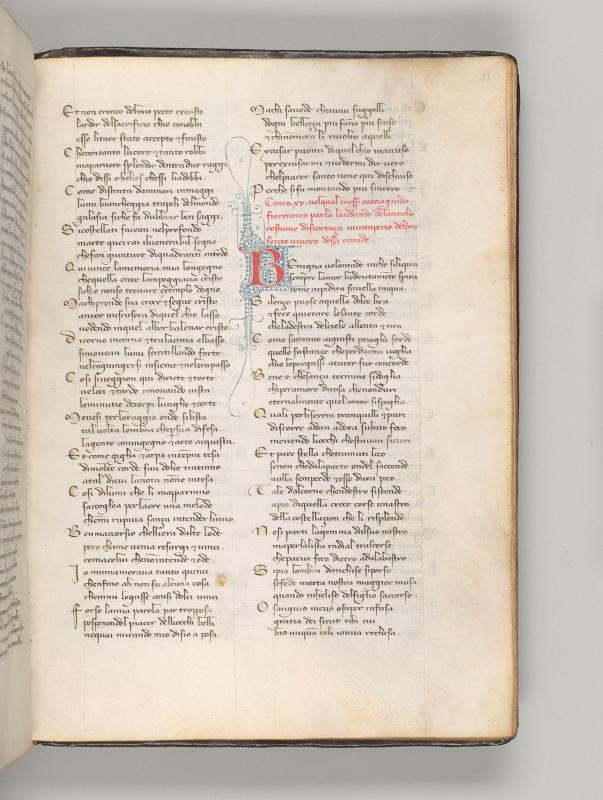 Et non eranco delmio pecto exausto
lardor delsacrificio chio conobbi
esso litare stato accepto & fausto
Che contanto lucore & tanto robbi
mapariuero splendor dentradue raggi
chio dissi o helios chessi liadobbi
Come distinta da minori inmaggi
lumi biancheggia trapoli delmondo
galasia sich fa dubbiar ben saggi
Si costellati facean nelprofondo
marte quei rai iluenerabil segno
chefan giunture di quadranti intondo
Qui uince lamemoria mia longegno
che quella croce lampeggiaua cristo
sichio nonso trouare exemplo degno
Machi prende sua croce & segue cristo
ancor miscusera diquel chio lasso
uedendo inquel albor balenar cristo
Di corno incorno & tralacima elbasso
simouean lumi scintillando forte
nelcongiungersi insieme & neltrapasso
Cosi siueggion qui diritte & torte
ueloci & tarde rinouando uista
leminutie decorpi lunghe & corte
Mouesi per loraggio onde silista
tal uolta lombra che persua difesa
lagente con ingegno & arte acquista
Et come giga & arpa intempra tesa
dimolte corde fan dolce tintinno
atal dicui lanota none intesa
Cosi dalumi che li mapparinno
sacoglea perlacroce una melode
chemi rapiua sanza intender linno
Ben maccorsio chellera dalte lode
pero chame uenia resurgi & uinci
comacolui che non intende & ode
Io minnamoraua tanto quinci
chenfino ali non fu alcuna cosa
chemmi legasse consi dolci uinci
Forse lamia parola par troppo osa
posponendol piacer dellocchi belli
nequai mirando mio disio a posa
Machi sauede cheuiui suggelli
dogni bellezza piu fanno piu suso
& chinonmera li riuolto aquelli
Excusar puomi diquel chio maccuso
perexcusarmi & uedermi dir uero
chelpiacer santo none qui dischiuso
Perche sifa montando piu sincero
Canto .xv. nelqual messe cacciaguida
fiorentino parla laudando delantico
costume di fiorenza inuituperio delpre
sente uiuere dessa citade
Benigna uolontade inche siliqua
sempre lamor che drittamente spira
come cupidita fa nella iniqua
Silenzo puose aquella dolce lira
& fece quietar lesante corde
cheladestra delcielo allenta & tira
Come saranno agiusti prieghi sorde
quelle sustance cheperdarmi uoglia
chio lepregassi atacer fur concorde
Bene e chesanza termine sidoglia
chi peramore dicosa chenonduri
eternalmente quel amor sispoglia
Quali perliseren tranquilli & puri
discorre adora adora subito foco
mouendo liocchi chestauan sicuri
Et pare stella chetramuti loco
senon chedalaparte ondel saccende
nulla semperde & esso dura poco
Tale dalcorno chendestro sistende
apie diquella croce corse unastro
della costellacion che li risplende
Nesi parti lagemma dalsuo nastro
maperlalista radial trascorse
cheparue foco dietro adalabastro
Sipia lombra danchise siporse
sefede merta nostra maggior musa
quando inheliso delfiglio saccorse
O sanguis meus o super infusa
gratia dei sicut tibi cui
bis unquam celi ianua reclusa